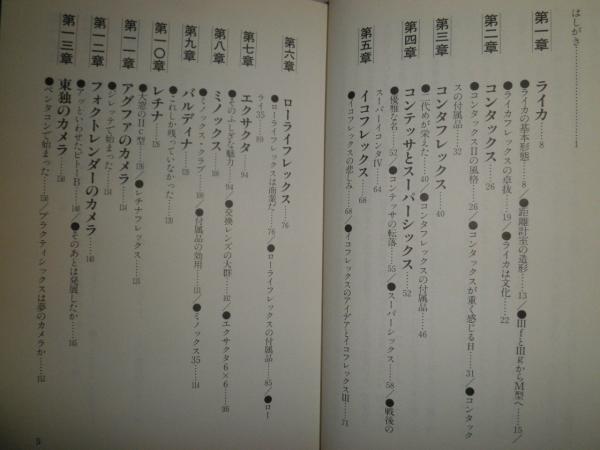 はしがき……………………1
第一章　ライカ……8
●ライカの基本形態……8／●距離計室の造形……13／●ⅢfとⅢgからM型へ……15／
●ライカフレックスの卓抜……19／●ライカは文化……22
第二章　コンタックス……26
●コンタックスⅡの風格……26／●コンタックスが重く感じる日……31／●コンタック
スの付属品……32
第三章　コンタフレックス……40
●二代めが栄えた……40／●コンタフレックスの付属品……46
第四章　コンテッサとスーパーシックス……52
●優雅な名……52／●コンテッサの転落……55／●スーパーシックス……58／●戦後の
スーパーイコンタⅣ……64
第五章　イコフレックス……68
●イコフレックスの悲しみ……68／●イコフレックスのアイデアとイコフレックスⅢ……71
第六章　ローライフレックス……76
●ローライフレックスは商業だ……76／●ローライフレックスの付属品……85／●ロー
ライ35……89
第七章　エクサクタ……94
●そのふしぎな魅力……94／●交換レンズの大群……102／●エクサクタ6×6……106
第八章　ミノックス……108
●ミノックス・クラブ……108／●付属品の効用……111／●ミノックス35……114
第九章　バルディナ……120
●これしか残っていなかった……120
第一〇章　レチナ……126
●大窓のⅡc型……126／●レチナフレックス……131
第一一章　アグファのカメラ……134
●シレッテで始まった……134
第一二章　フォクトレンダーのカメラ……140
●アッといわせたビトーB……140／●そのあとは発展したか……145
第一三章　東独のカメラ……150
●ペンタコンで始まった……150／●プラクティシックスは夢のカメラか……152
5